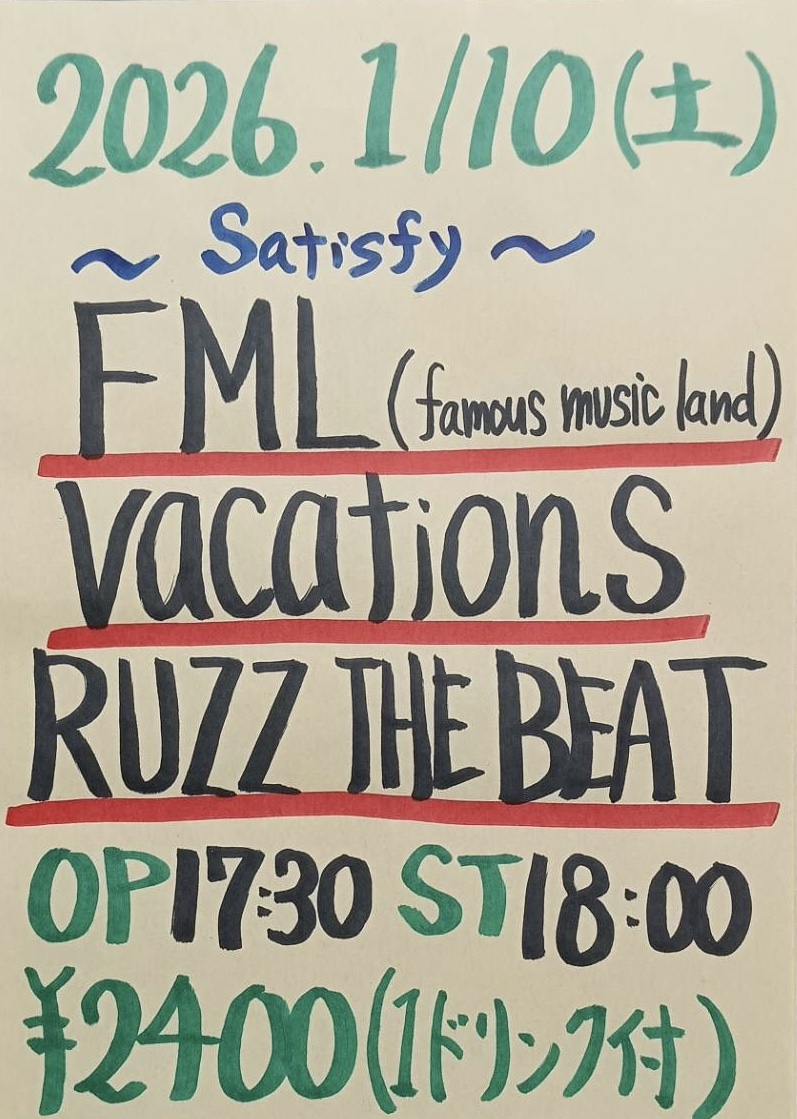 2026.1/10(土)
~ Satisfy ~
FML (famous music land)
vacations
RUZZ THE BEAT
OP17:30 ST18:00
¥2400(1ドリンク付)